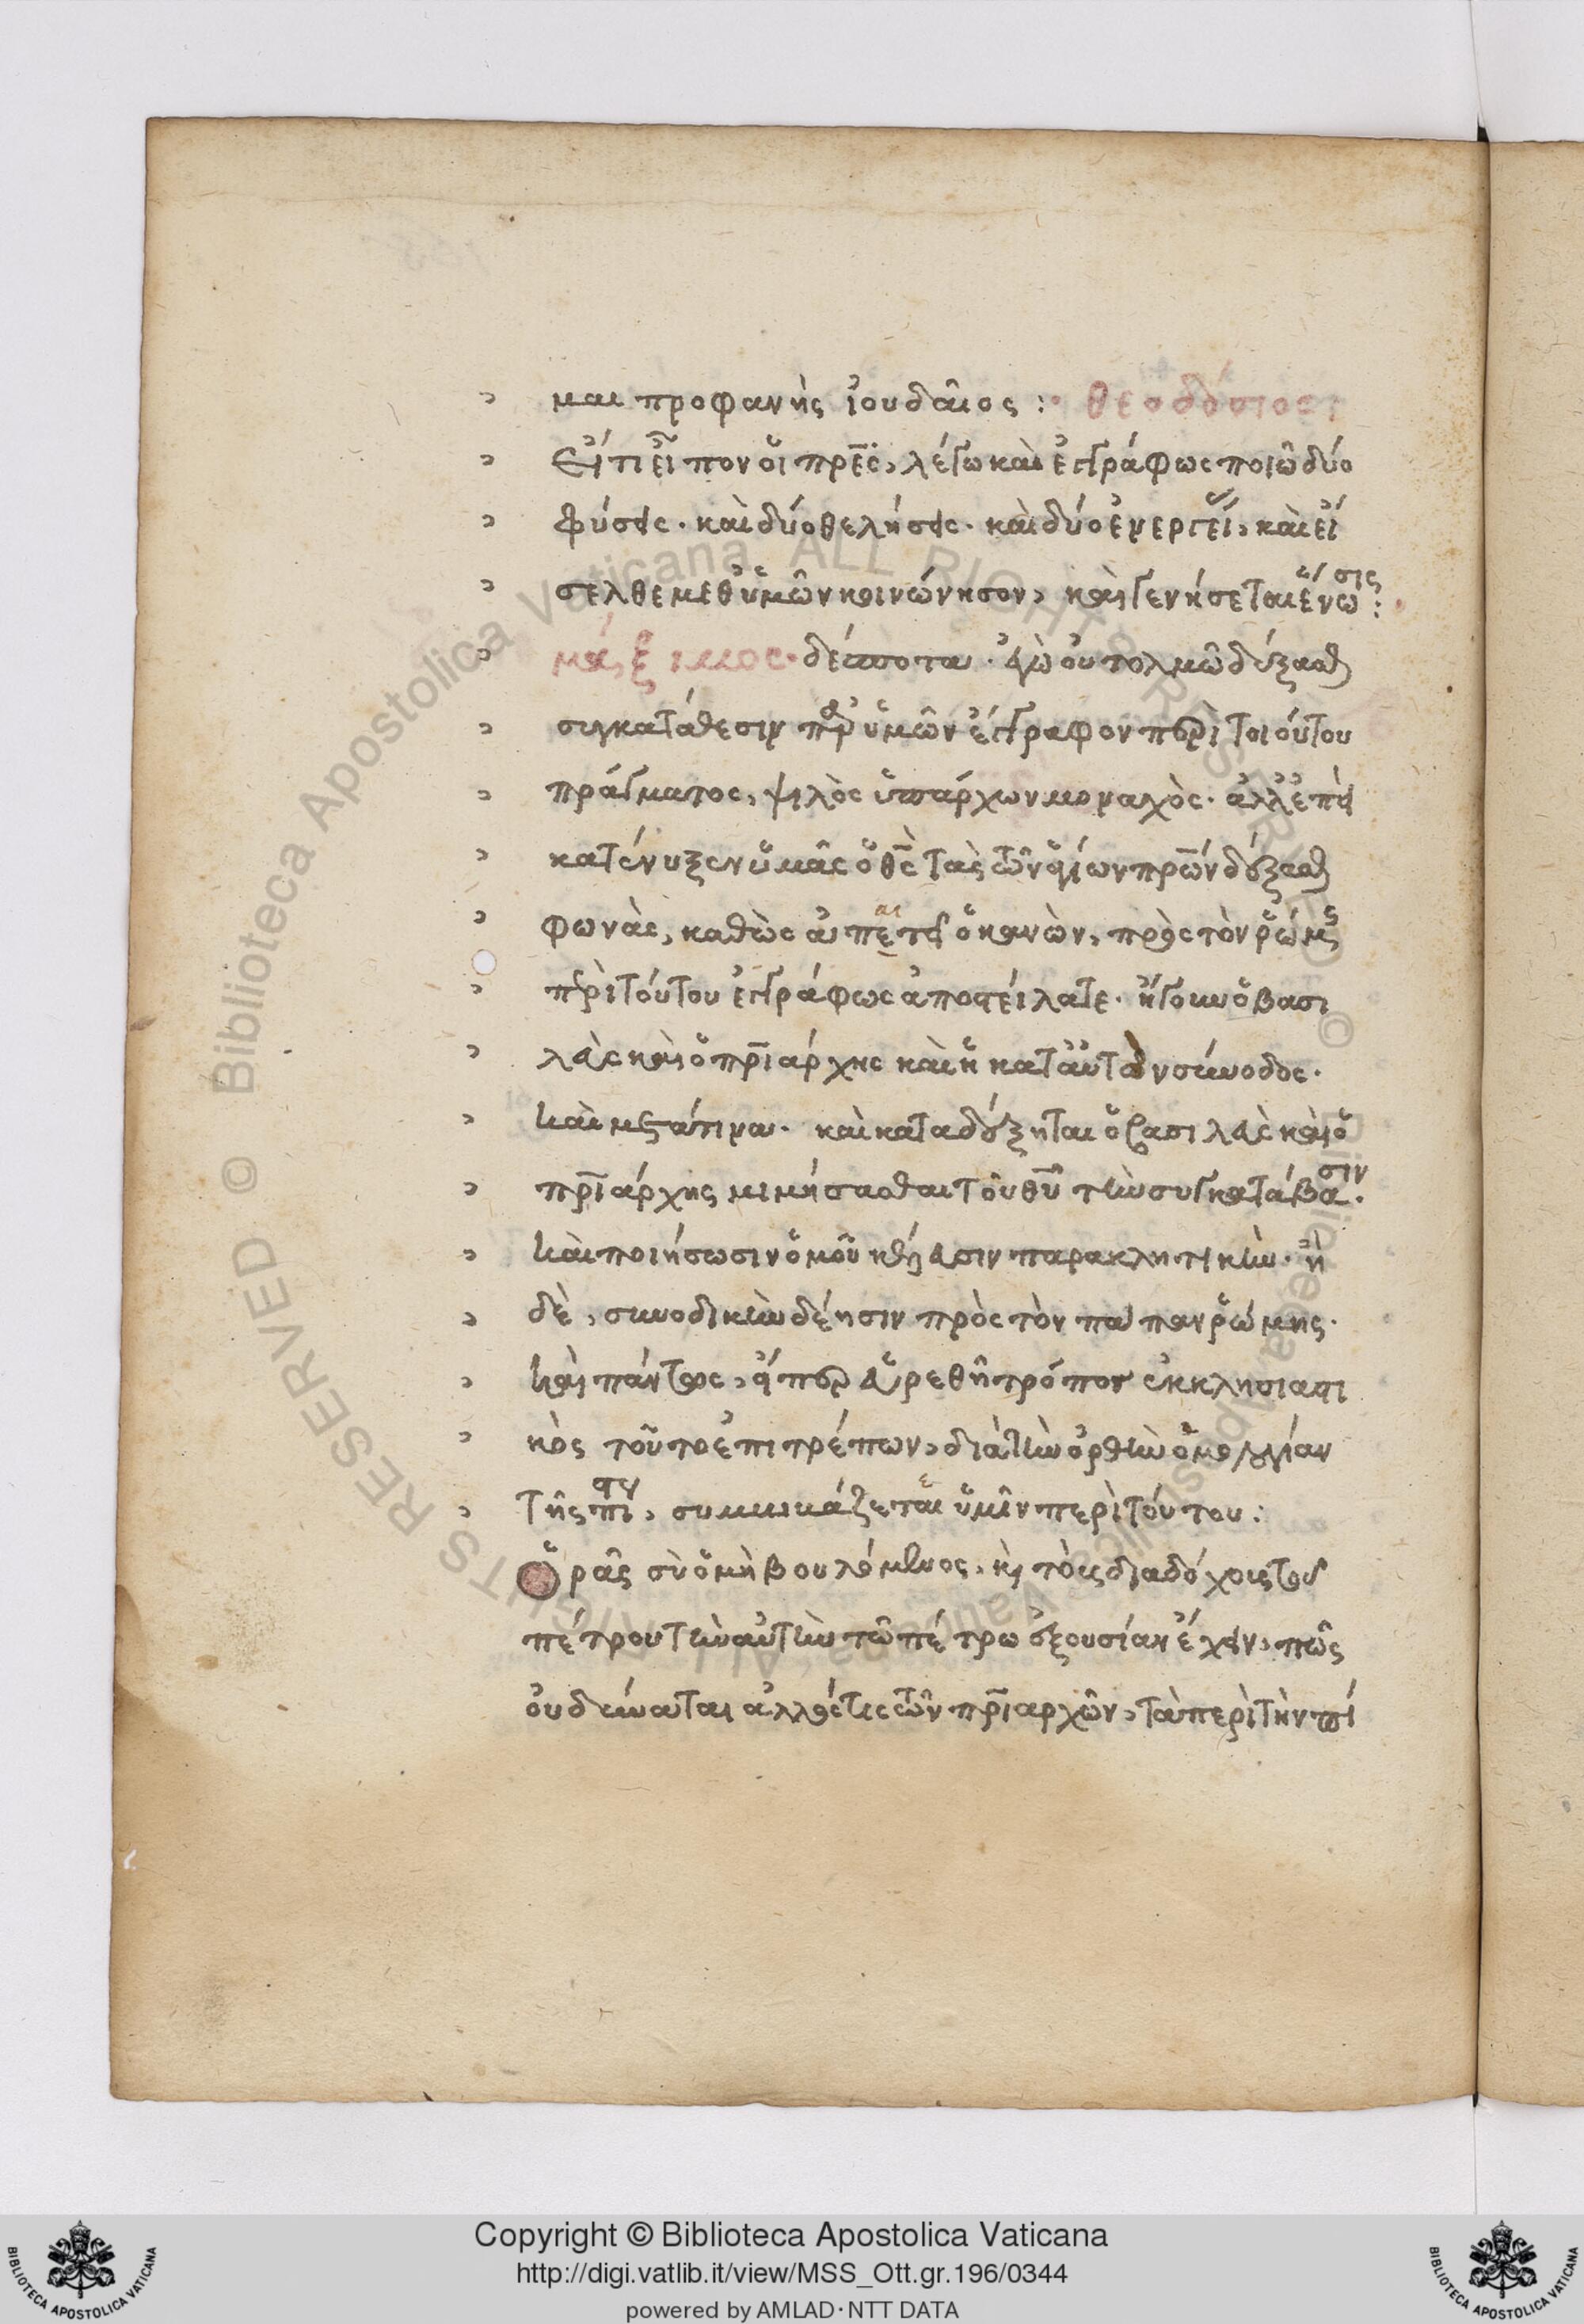 μαι προφανὴς ἰουδαῖος :· θεοδόσιος :
Εἴ τι εἶπον οἱ πρες, λέγω καὶ ἐγγράφως ποιῶ δύο
φύσεις · καὶ δύο θελήσεις · καὶ δύο ἐνεργεί, καὶ εἴ
σελθε μεθ' ὑμῶν κοινώνησον, καὶ γενήσεται ἕνωσις :
μάξιμος · δέσποτα · ἐγὼ οὐ τολμῶ δέξασθαι
συγκατάθεσιν παρ' ὑμῶν ἔγγραφον περὶ τοιούτου
πράγματος, ψιλὸς ὑπάρχων μοναχὸς · ἀλλ' ἐπεὶ
κατένυξεν ὑμᾶς ὁ θς τὰς τῶν ἁγίων πρων δέξασθαι
φωνὰς, καθὼς ἀπαιτεῖ ὁ κανὼν, πρὸς τὸν ῥώμης
περὶ τούτου ἐγγράφως ἀποστείλατε · ἤγουν ὁ βασι
λεὺς καὶ ὁ πριάρχης καὶ ἡ κατ' αὐτὸν σύνοδος ·
καὶ · καὶ καταδέξηται ὁ βασιλεὺς καὶ ὁ
πριάρχης μιμήσασθαι τοῦ θυ τὴν συγκατάβασιν ·
καὶ ποιήσωσιν ὁμοῦ κέλευσιν παρακλητικὴν · ἡ
δὲ, συνοδικὴν δέησιν πρὸς τὸν πάπαν ῥώμης ·
καὶ πάντως, εἴπερ εὑρεθῇ τρόπος ἐκκλησιαστι
κὸς τοῦτο ἐπιτρέπων, διὰ τὴν ὀρθὴν ὁμολογίαν
τῆς πι, συμβιβάζεται ὑμῖν περὶ τούτου :
Ὁρᾷς σὺ ὁ μὴ βουλόμενος, καὶ τοῖς διαδόχοις τοῦ
πέτρου τὴν αὐτὴν τῷ πέτρῳ ἐξουσίαν ἔχειν, πῶς
οὐ δύναται ἄλλός τις τῶν πριαρχῶν, τὰ περὶ τὴν πί
Copyright © Biblioteca Apostolica Vaticana
http://digi.vatlib.it/view/MSS_Ott.gr.196/0344
powered by AMLAD · NTT DATA